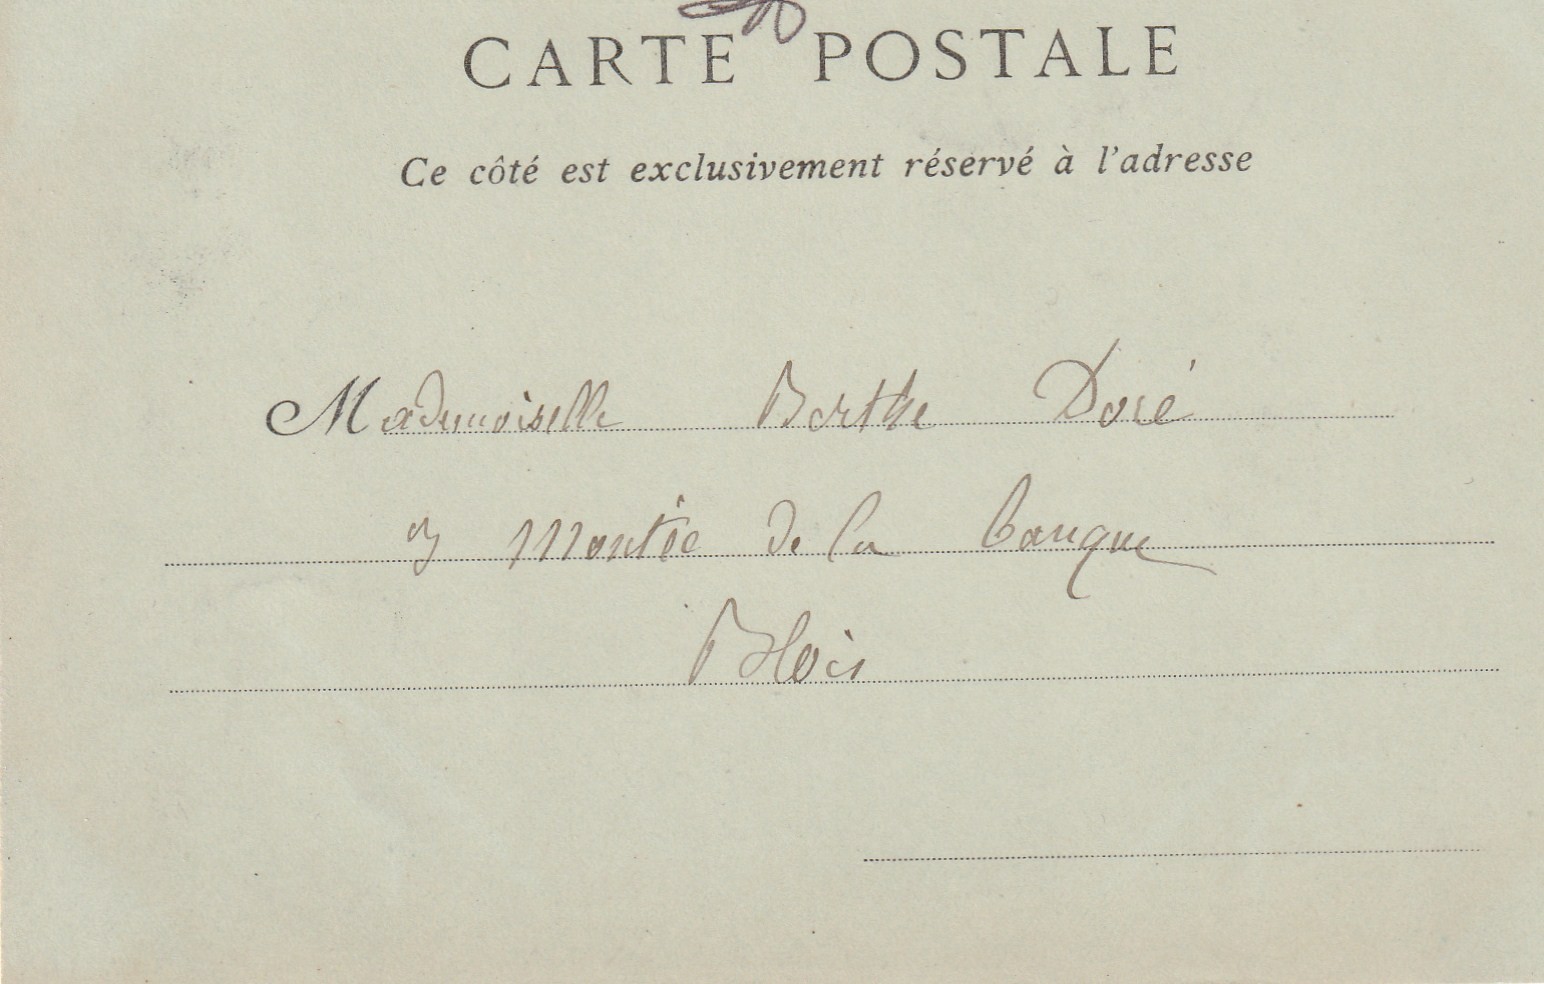 CARTE POSTALE
Ce côté est exclusivement réservé à l'adresse
Mademoiselle Berthe Doré
Montée de la banque
Blois